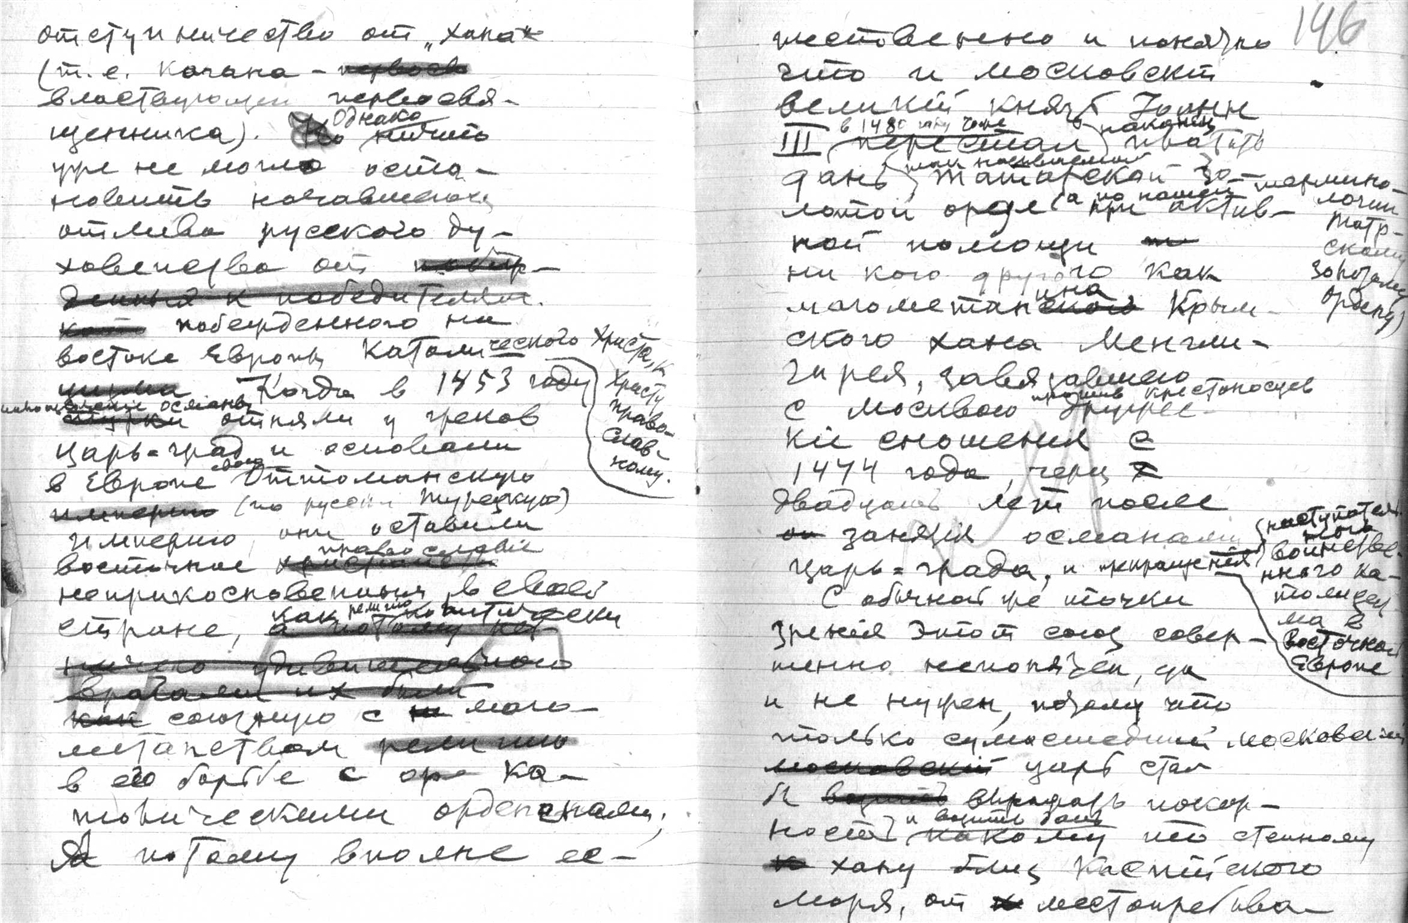 отступничество от „хана"
(т.е. Кагана –
властвующей первосвя-
щенника). Однако ничто
уже не могло оста-
новить начавшегося
отлива русского ду-
ховенства от
побежденного на
востоке Европы Католического Христа, к
Христу
право-
слав-
ному.
Когда в 1453 году
османы отняли у греков
Царь-град и основали
в Европе свою Оттоманскую
(по русски турецкую)
империю, они оставили
восточное православие
неприкосновенным в своей
стране, как религию
союзную с маго-
метанством
в его борьбе с ка-
толическими орденами,
А потому вполне ес-
146
тественно и понятно
что и московскiй
великiй князь Iоанн
III в 1480 году
перестал наконец платить
дань так называемой Татарской Зо-
лотой орде (а по нашей термино-
логии
Татар-
скому
Золотому
Ордену)
при актив-
ной помощи
ни кого другого как
магометанина Крым-
ского хана Менгли-
Гирея, завязавшего
против крестоносцев
с Москвою дружес-
кiе сношения с
1474 года, через
двадцать лет после
занятiя османами
Царь-града, и прекращения
наступатель-
ного
воинстве-
нного ка-
толицез
ма в
восточной
Европе
С обычной же точки
зренiя этот союз совер-
шенно непонятен, да
и не нужен, потому что
только сумасшедшiй московскiй
царь стал
бы выражать покор-
ность и возить дань
какому то степному
хану близ Каспiйского
моря, от местопребыва-